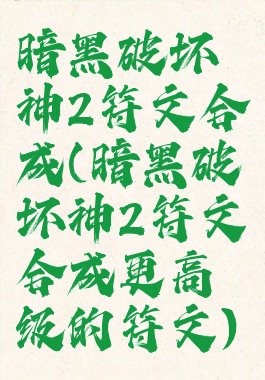 暗黑破坏
神2符文合
成(暗黑破
坏神2符文
合成更高
级的符文)